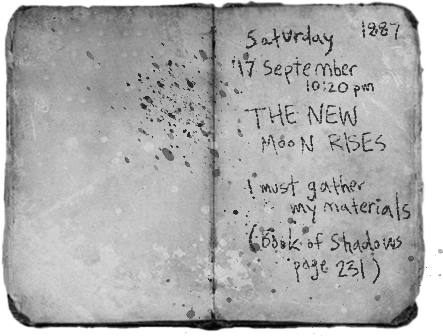 Saturday 1887
17 September
10:20 pm
THE NEW
MOON RISES
I must gather
my materials
(Book of Shadows
page 231)